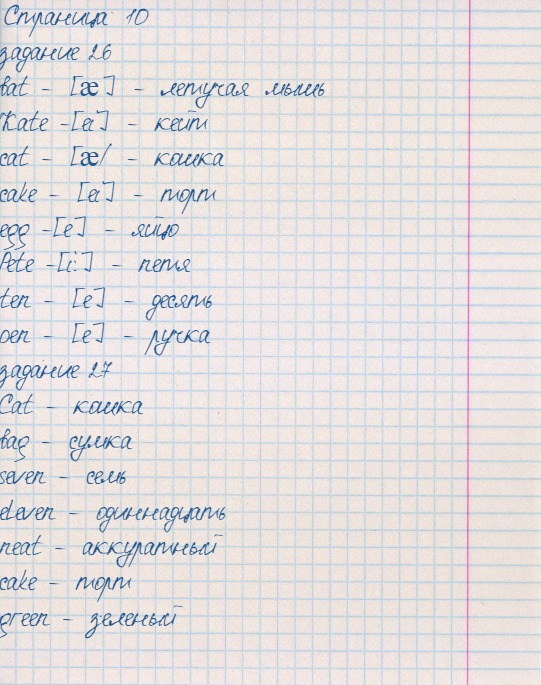 Страница 10
задание 26
bat - [æ] - летучая мышь
Kate - [ei] - кейт
cat - [æ/ - кошка
cake - [ei] - торт
egg - [e] - яйцо
Pete - [i:] - петя
ten - [e] - десять
pen - [e] - ручка
задание 27
Cat - кошка
bag - сумка
seven - семь
eleven - одиннадцать
neat - аккуратный
cake - торт
green - зеленый